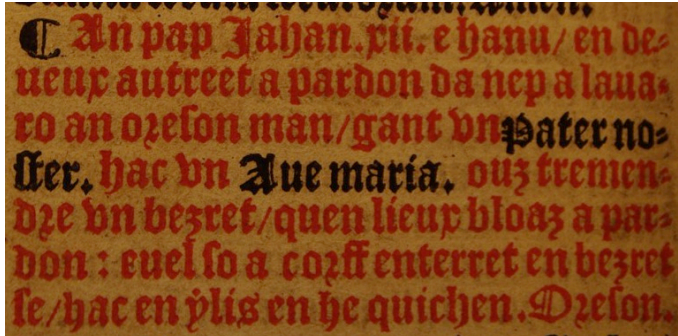 ¶ An pap Jahan.xii. e hanu/ en de⸗
ueux autreet a pardon da nep a laua⸗
ro an oreson man/gant vn Pater no⸗
ster. hac vn Aue maria. ouz tremen⸗
dre vn bezret/quen lieux bloaz a par⸗
don : euel so a corff enterret en bezret
se/hac en ẏlis en he quichen. Oreson.